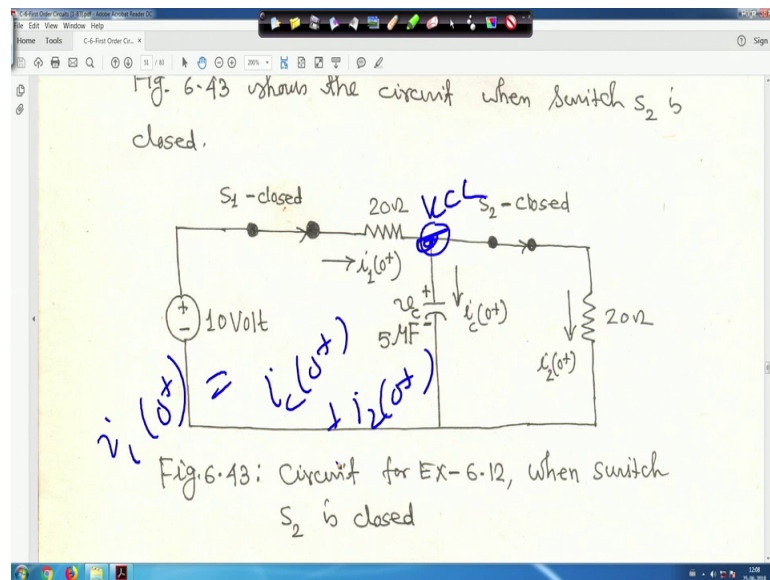 C-6-First Order Circuits [1-83].pdf - Adobe Acrobat Reader DC
File Edit View Window Help
Home Tools C-6-First Order Cir... × Sign
51 / 83 200%
Fig. 6.43 shows the circuit when switch S2 is
closed.
S1 - closed
20Ω
KCL
S2 - closed
i1(0+)
10 Volt
vc
+
-
5 MF
ic(0+)
i2(0+)
20Ω
i1(0+) = ic(0+)
+ i2(0+)
Fig. 6.43: Circuit for EX-6.12, when switch
S2 is closed
12:08